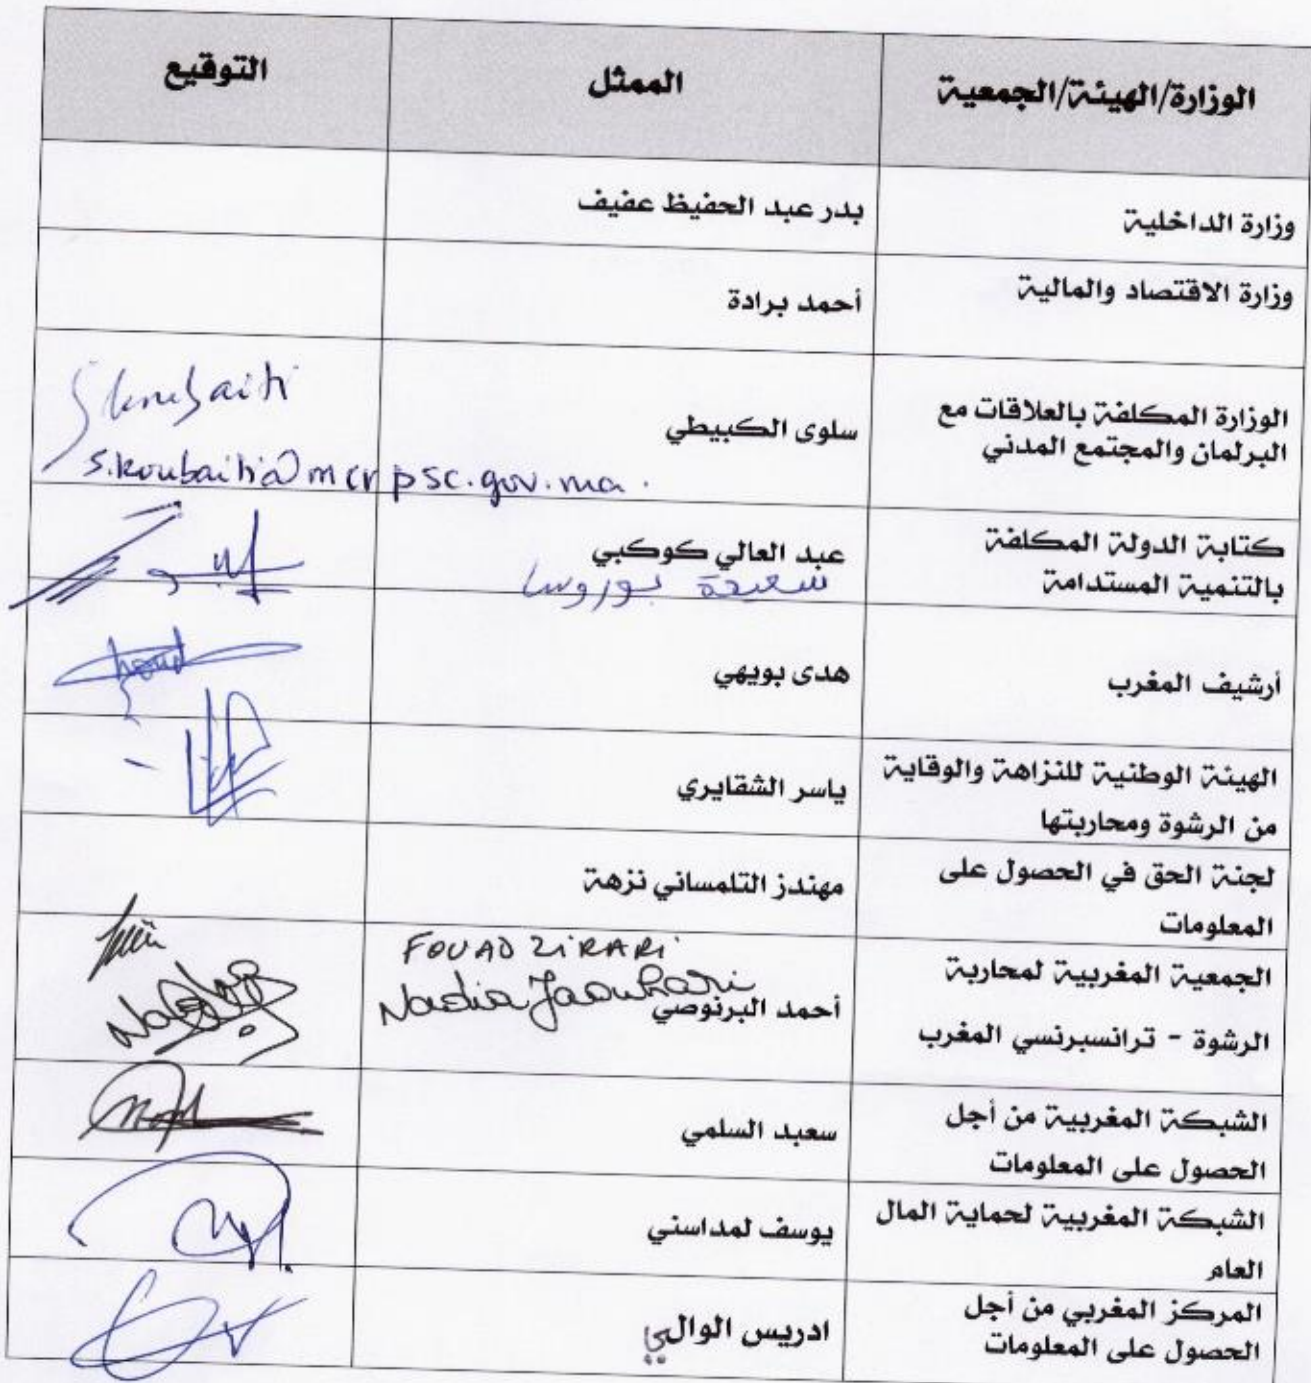 الوزارة/الهيئة/الجمعية الممثل التوقيع
وزارة الداخلية بدر عبد الحفيظ عفيف
وزارة الاقتصاد والمالية أحمد برادة
الوزارة المكلفة بالعلاقات مع
البرلمان والمجتمع المدني
سلوى الكبيطي
Skoubaiti
s.koubaiti@mcrpsc.gov.ma.
كتابة الدولة المكلفة
بالتنمية المستدامة
عبد العالي كوكبي
سعيدة بوروسا
أرشيف المغرب هدى بويهي
الهيئة الوطنية للنزاهة والوقاية
من الرشوة ومحاربتها
ياسر الشقايري
لجنة الحق في الحصول على
المعلومات
مهندز التلمساني نزهة
الجمعية المغربية لمحاربة
الرشوة - ترانسبرنسي المغرب
FOUAD ZIRARI
Nadia Jaouhari
أحمد البرنوصي
الشبكة المغربية من أجل
الحصول على المعلومات
سعبد السلمي
الشبكة المغربية لحماية المال
العام
يوسف لمداسني
المركز المغربي من أجل
الحصول على المعلومات
ادريس الوالي